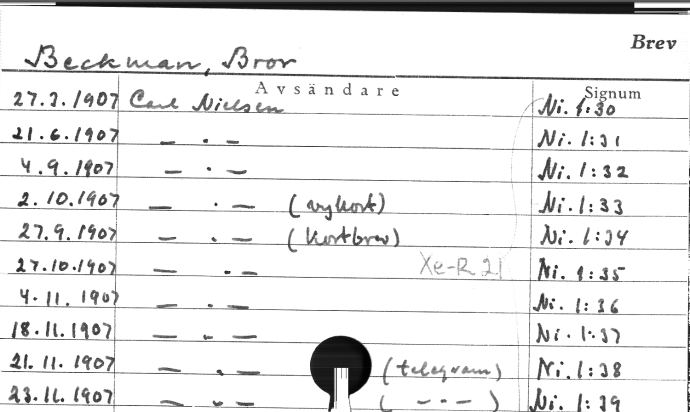 Brev
Beckman, Bror
Avsändare Signum
27.3.1907 Carl Nielsen Ni. 1:30
21.6.1907 — . — Ni. 1:31
4.9.1907 — . — Ni. 1:32
2.10.1907 — . — (vykort) Ni. 1:33
27.9.1907 — . — (kortbrev) Ni. 1:34
27.10.1907 — . — Xe-R 21 Ni. 1:35
4.11.1907 — . — Ni. 1:36
18.11.1907 — . — Ni. 1:37
21.11.1907 — . — (telegram) Ni. 1:38
23.11.1907 — . — ( — . — ) Ni. 1:39